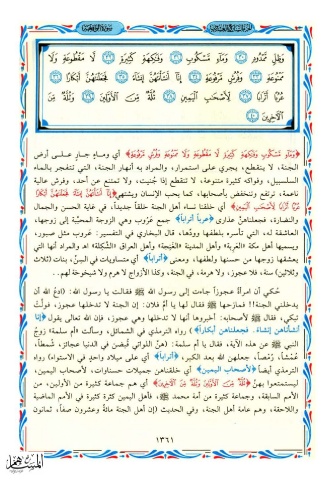 وَظِلٍّ مَمْدُودٍ وَمَاءٍ مَسْكُوبٍ وَفَاكِهَةٍ كَثِيرَةٍ لَا مَقْطُوعَةٍ وَلَا
مَمْنُوعَةٍ وَفُرُشٍ مَرْفُوعَةٍ إِنَّا أَنْشَأْنَاهُنَّ إِنْشَاءً فَجَعَلْنَاهُنَّ أَبْكَارًا
عُرُبًا أَتْرَابًا لِأَصْحَابِ الْيَمِينِ ثُلَّةٌ مِنَ الْأَوَّلِينَ وَثُلَّةٌ مِنَ
الْآخِرِينَ
﴿وَمَاءٍ مَسْكُوبٍ وَفَاكِهَةٍ كَثِيرَةٍ لَا مَقْطُوعَةٍ وَلَا مَمْنُوعَةٍ وَفُرُشٍ مَرْفُوعَةٍ﴾ أي وماءٍ جارٍ على أرض
الجنة، لا ينقطع، يجري على استمرار، والمراد به أنهار الجنة، التي تتفجر بالماء
السلسبيل، وفواكه كثيرة متنوعة، لا تنقطع إذا جُنيت، ولا تمتنع عن أحد، وفرش عالية
ناعمة، ترتفع وتنخفض بأصحابها، كما يحب الإنسان ويشتهي ﴿إِنَّا أَنْشَأْنَاهُنَّ إِنْشَاءً فَجَعَلْنَاهُنَّ أَبْكَارًا
عُرُبًا أَتْرَابًا لِأَصْحَابِ الْيَمِينِ﴾ أي خلقنا نساء أهل الجنة خلقاً جديداً، في غاية الحسن والجمال
والنضارة، فجعلناهنَّ عذارى ﴿عرباً أتراباً﴾ جمع عَرُوب وهي الزوجة المحبَّبة إلى زوجها،
العاشقة له، التي تأسره بلطفها وودِّها، قال البخاري في التفسير: عَروب مثل صبور،
ويسميها أهل مكة «العَرِبة» وأهل المدينة «الغَنِجة» وأهل العراق «الشَّكِلة» اهـ والمراد أنها التي
يعشقها زوجها من حسنها ولطفها، ومعنى ﴿أتراباً﴾ أي متساويات في السِّنّ، بنات (ثلاث
وثلاثين) سنة، فلا عجوز، ولا هرمة، في الجنة، وكذا الأزواج لا هرمَ ولا شيخوخة لهم..
حُكي أن امرأةً عجوزاً جاءت إلى رسول الله ﷺ فقالت يا رسول الله: (ادعُ الله أن
يدخلني الجنة! فمازحها ﷺ فقال لها يا أمَّ فلان: إن الجنة لا تدخلها عجوز، فولَّتْ
تبكي، فقال ﷺ لأصحابه: أخبروها أنها لا تدخلها وهي عجوز، فإن الله تعالى يقول ﴿إنا
أنشأناهن إنشاءً. فجعلناهن أبكاراً﴾) رواه الترمذي في الشمائل، وسألت «أم سلمة» زوجُ
النبي ﷺ عن هذه الآية، فقال يا أم سلمة: (هنَّ اللواتي قُبِضن في الدنيا عجائز، شُمطاً،
عُمشاً، رُمصاً، جعلهن الله بعد الكبر، ﴿أتراباً﴾ أي على ميلادٍ واحدٍ في الاستواء) رواه
الترمذي أيضاً ﴿لأصحاب اليمين﴾ أي خلقناهن جميلات حسناوات، لأصحاب اليمين،
ليستمتعوا بهنَّ ﴿ثُلَّةٌ مِنَ الْأَوَّلِينَ وَثُلَّةٌ مِنَ الْآخِرِينَ﴾ أي هم جماعة كثيرة من الأولين، من
الأمم السابقة، وجماعة كثيرة من أمة محمد ﷺ، فأهل اليمين كثرة كثيرة في الأمم الماضية
واللاحقة، وهم عامة أهل الجنة، وفي الحديث (إن أهل الجنة مائة وعشرون صفاً، ثمانون
١٣٦١